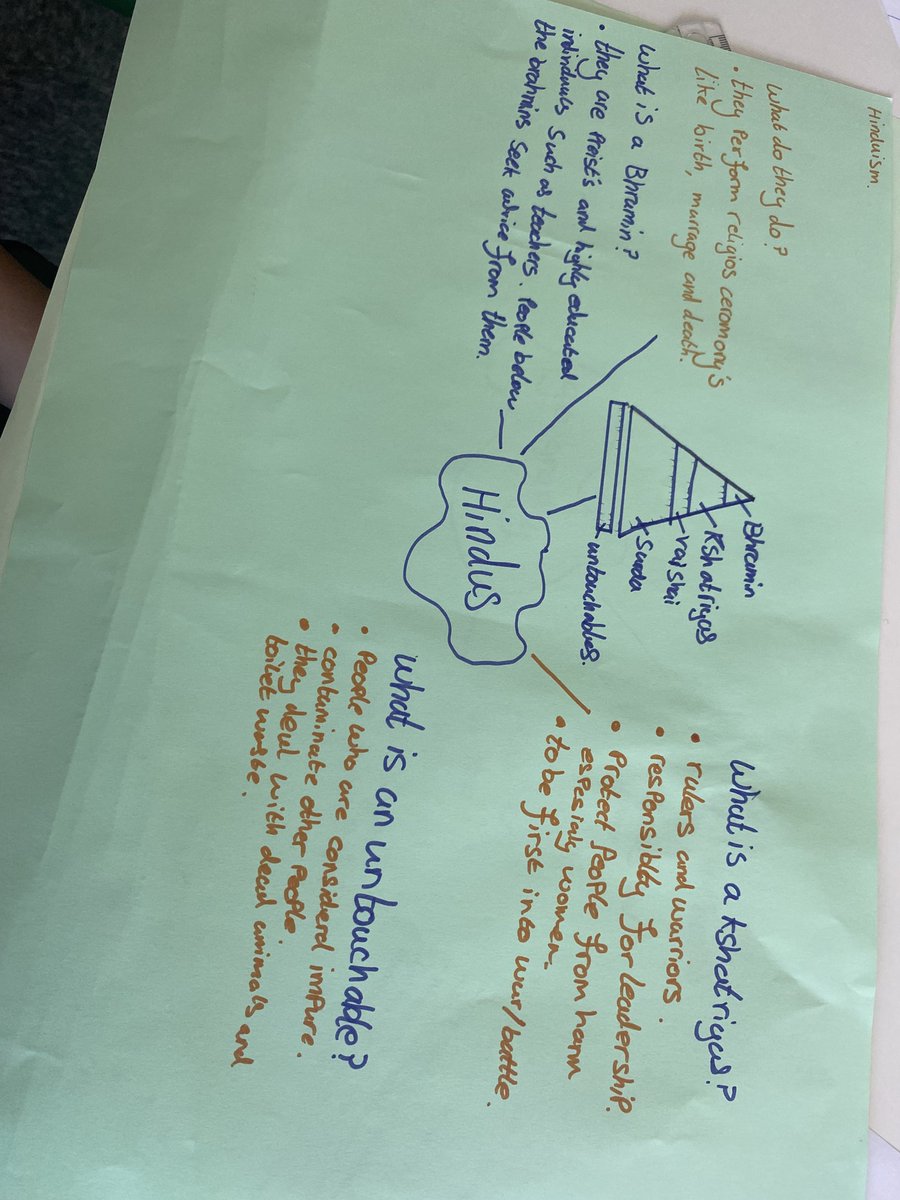 Hinduism.
what do they do?
• they perform religios ceromony's
like birth, murrage and death.
what is a Bhramin?
• they are Preist's and highly educated
indinduals such as teachers. People below
the brahmins seek advice from them.
Bhramin
Kshatriyas
vaishai
Sudra
untouchables.
Hindus
what is a kshatriyas?
• rulers and warriors.
• responsiblty for leadership.
• Protect people from harm
espesialy women.
• to be first into war/battle.
what is an untouchable?
• People who are considerd impure.
• contaminate other people.
• they deal with dead animals and
toilet waste.